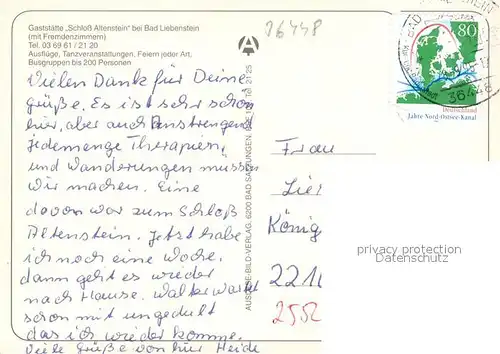 Gaststätte „Schloß Altenstein" bei Bad Liebenstein
(mit Fremdenzimmern)
Tel. 03 69 61 / 21 20
Ausflüge, Tanzveranstaltungen, Feiern jeder Art.
Busgruppen bis 200 Personen
36448
Vielen Dank für Deine
grüße. Es ist sehr schön
hier, aber auch anstrengend
Jedemenge Therapien
und Wanderungen müssen
wir machen. Eine
davon war zum Schloß
Altenstein. Jetzt habe
ich noch eine Woche,
dann geht es wieder
nach Hause. Walter wartet
schon mit ungeduld
das ich wieder komme.
Viele Grüße von hier Heide
BILD-VERLAG, 6200 BAD SALZUNGEN,
21 25
80
BAD
36448
Deutschland
Jahre Nord-Ostsee-Kanal
Frau
König
221
255
privacy protection
Datenschutz